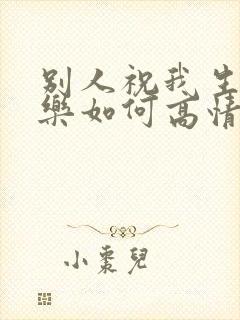 别人祝我生
樂如何高情
小棗兒